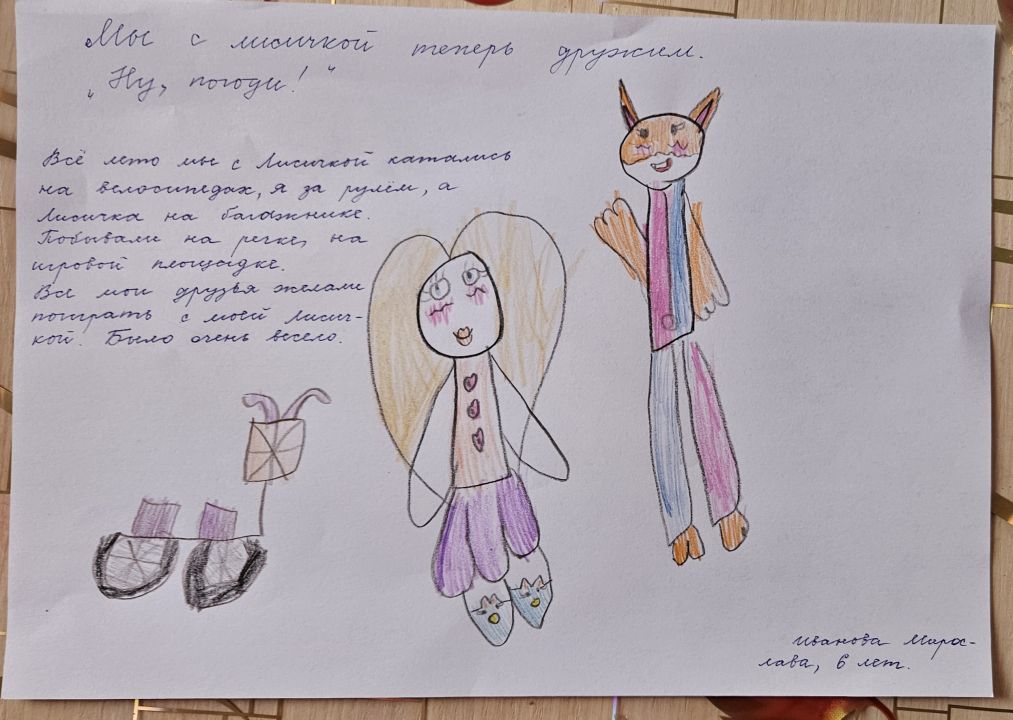 Мы с лисичкой теперь дружим.
„Ну, погоди!"
Всё лето мы с Лисичкой катались
на велосипедах, я за рулём, а
Лисичка на багажнике.
Побывали на речке, на
игровой площадке.
Все мои друзья желали
поиграть с моей Лисич-
кой. Было очень весело.
Иванова Мирос-
лава, 6 лет.